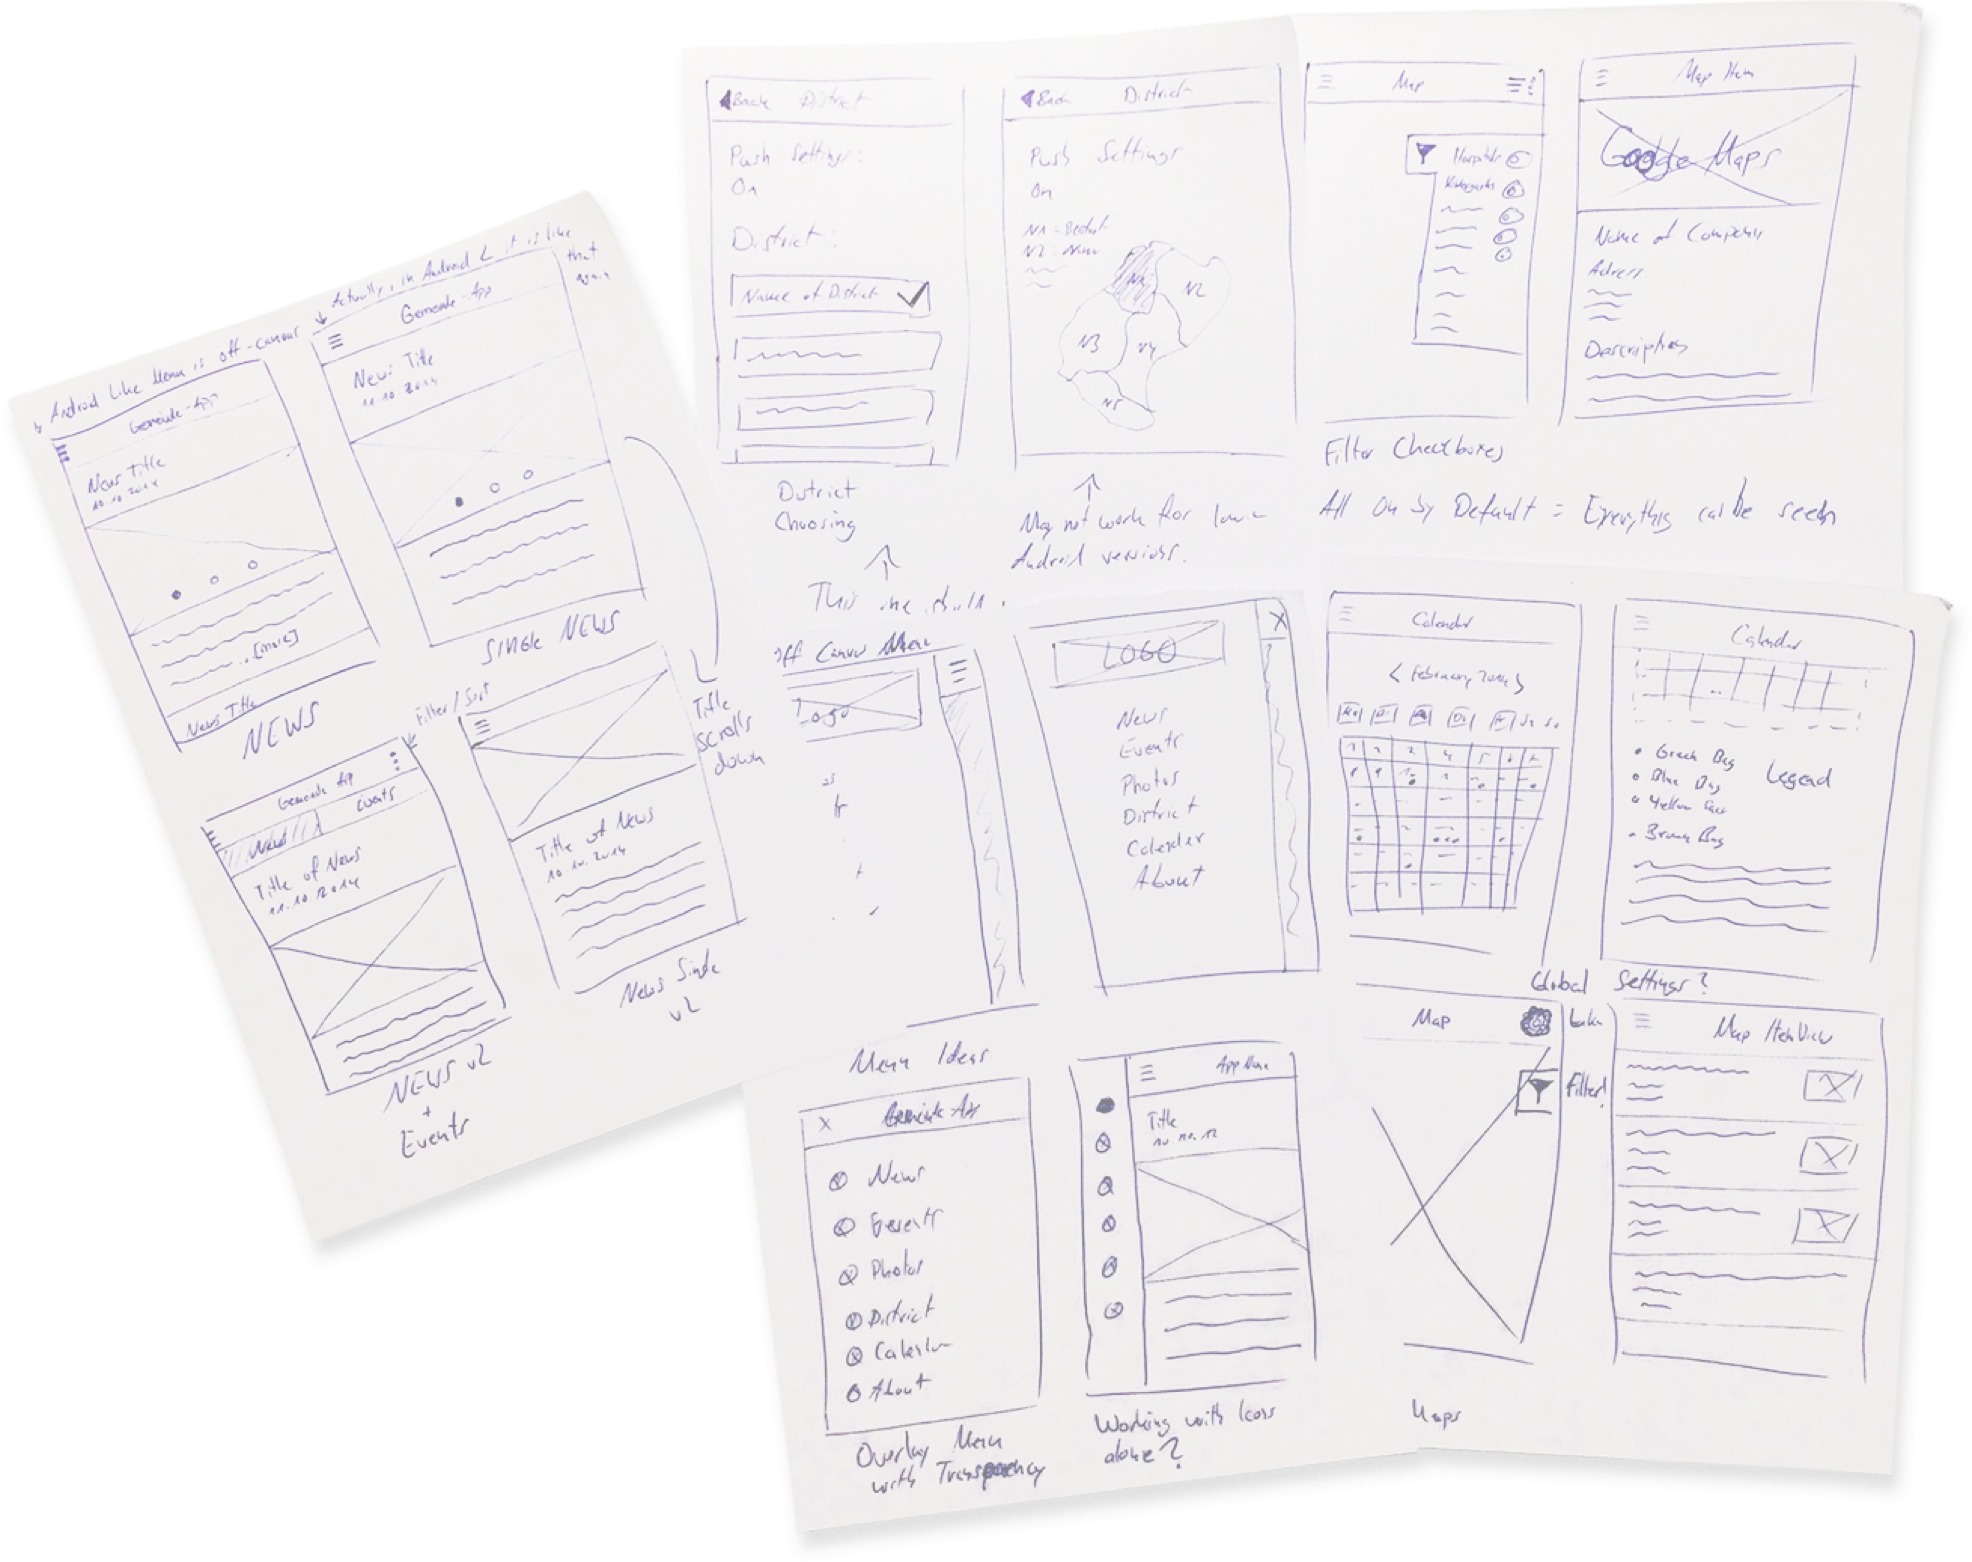 Android Like Menu is off-canvas
Actually, in Android L it is like
that
again
Gemeinde-App
News Title
10.10.2014
[more]
News Title
NEWS
Gemeinde-App
News Title
11.10.2014
SINGLE NEWS
Title
scrolls
down
Filter/Sort
Gemeinde App
News
Events
Title of News
11.10.2014
NEWS v2
+
Events
Title of News
10.10.2014
News Single
v2
Back District
Push Settings:
On
District:
Name of District
District
Choosing
This one should.
Back District
Push Settings
On
N1 =
N2 =
N1
N2
N3
N4
N5
May not work for lower
Android versions.
Map
Hospitals
Kindergarten
Filter Checkboxes
All On by Default = Everything can be seen
Map Item
Google Maps
Name of Company
Adress
Description
Off Canvas Menu
Logo
LOGO
X
News
Events
Photos
District
Calender
About
Calendar
< February 2014 >
Mo Di Mi Do Fr Sa So
Calendar
Green Bag
Blue Bag
Yellow Sack
Brown Bag
Legend
Global Settings?
Menu Ideas
X
Gemeinde-App
News
Events
Photos
District
Calendar
About
Overlay Menu
with Transparency
App Name
Title
10.10.12
Working with Icons
alone?
Map
Filter!
Maps
Map Item View